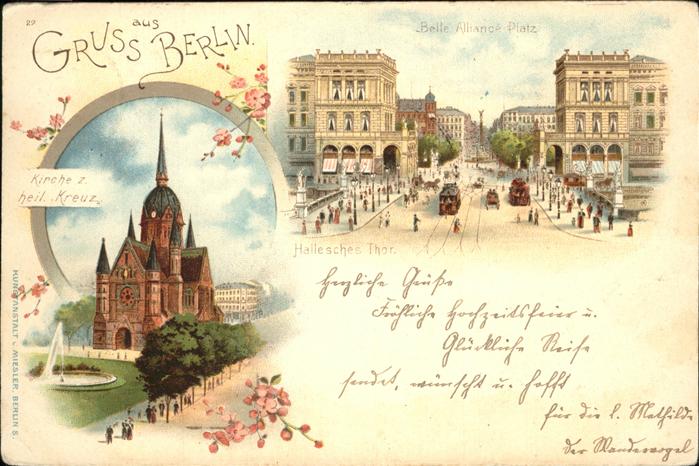 29
GRUSS aus BERLIN.
Belle Alliance Platz
Kirche z.
heil. Kreuz.
Hallesches Thor.
KUNSTANSTALT J. MIESLER, BERLIN S.
Herzliche Grüße
Fröhliche Hochzeitsfeier u.
Glückliche Reise
sendet, wünscht u. hofft
für die l. Mathilde
der Wandervogel